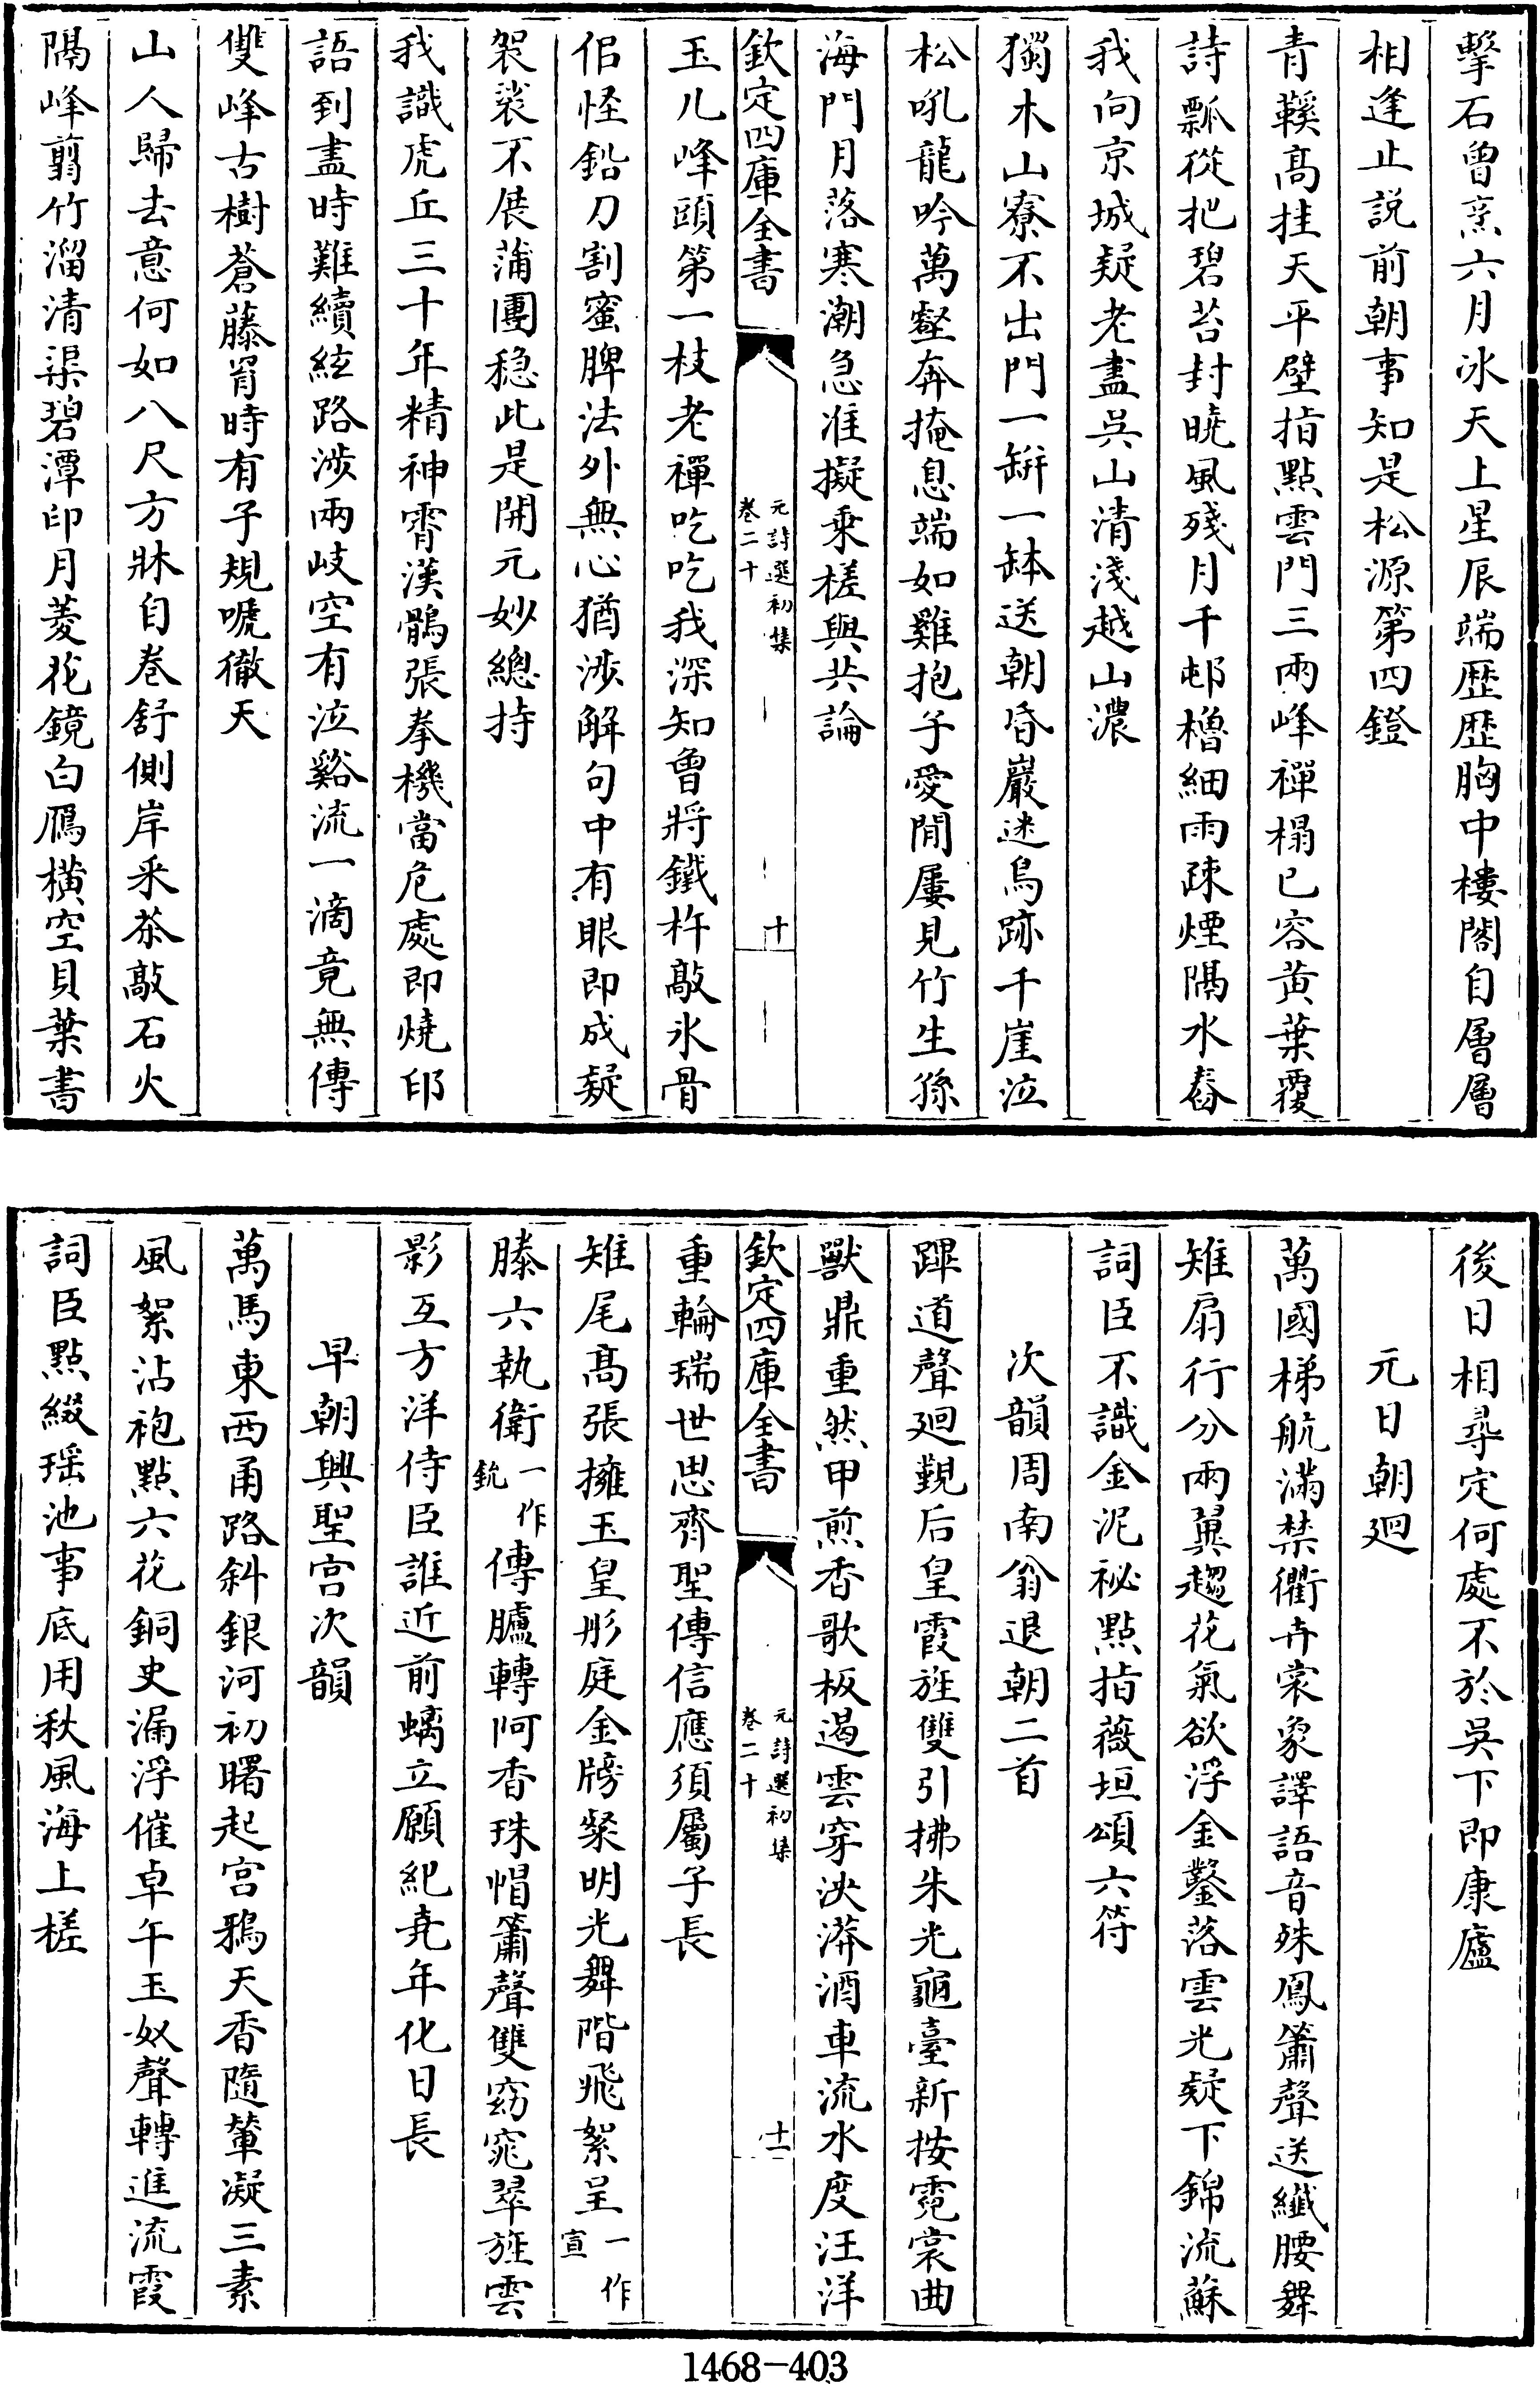 擊石曾烹六月冰天上星辰端歷歷胸中樓閣自層層
相逢止說前朝事知是松源第四鐙
青鞵高挂天平壁指點雲門三兩峰禪榻已容黄葉覆
詩瓢從把碧苔封曉風殘月千邨櫓細雨疎煙隔水舂
我向京城疑老盡吳山清淺越山濃
獨木山寮不出門一缾一鉢送朝昏巖迷鳥跡千崖泣
松吼龍吟萬壑奔掩息端如雞抱子愛閒屢見竹生孫
海門月落寒潮急准擬乗槎與共論
欽定四庫全書
元詩選初集
卷二十
十
玉几峰頭第一枝老禪吃吃我深知曾將鐵杵敲氷骨
侣怪鉛刀割蜜脾法外無心猶涉解句中有眼即成疑
袈裟不展蒲團穏此是開元妙總持
我識虎丘三十年精神霄漢鶻張拳機當危處即燒印
語到盡時難續絃路涉兩岐空有泣谿流一滴竟無傳
雙峰古樹蒼藤罥時有子規嗁徹天
山人歸去意何如八尺方牀自巻舒側岸采茶敲石火
隔峰翦竹溜清渠碧潭印月菱花鏡白鴈横空貝葉書
後日相尋定何處不於吳下即康廬
元日朝廻
萬國梯航滿禁衢卉裳象譯語音殊鳳簫聲送纖腰舞
雉扇行分兩翼趨花氣欲浮金鑿落雲光疑下錦流蘇
詞臣不識金泥祕點指薇垣頌六符
次韻周南翁退朝二首
蹕道聲廻覲后皇霞旌雙引拂朱光龜臺新按霓裳曲
獸鼎重然甲煎香歌板遏雲穿泱漭酒車流水度汪洋
欽定四庫全書
元詩選初集
卷二十
十一
重輪瑞世思齊聖傳信應須屬子長
雉尾高張擁玉皇彤庭金牓粲明光舞階飛絮呈一作宣
滕六執衛一作鈗傳臚轉阿香珠帽簫聲雙窈窕翠旌雲
影互方洋侍臣誰近前螭立願紀堯年化日長
早朝興聖宫次韻
萬馬東西甬路斜銀河初曙起宫鴉天香隨輦凝三素
風絮沾袍點六花銅史漏浮催卓午玉奴聲轉進流霞
詞臣點綴瑶池事底用秋風海上槎
1468-403